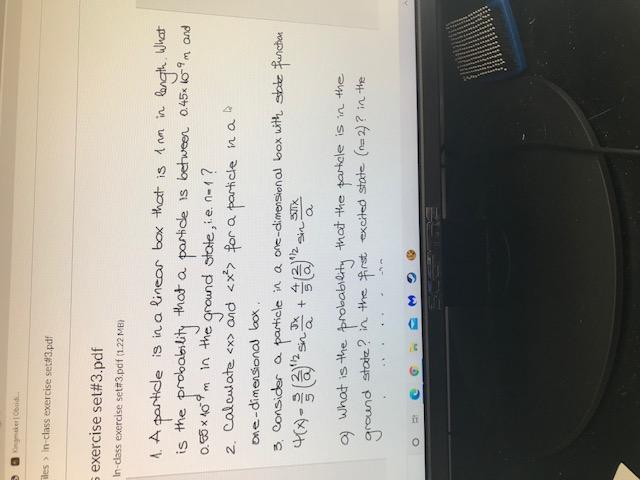 Kingmaker | Obsidi...
iles > In-class exercise set#3.pdf
s exercise set#3.pdf
In-class exercise set#3.pdf (1.22 MB)
1. A particle is in a linear box that is 1 nm in length. What
is the probability that a particle is between 0.45×10⁻⁹ m and
0.55×10⁻⁹ m in the ground state, i.e. n=1?
2. Calculate <x> and <x²> for a particle in a
one-dimensional box.
3. Consider a particle in a one-dimensional box with state function
Ψ(x) = 3/5 (2/a)^1/2 sin πx/a + 4/5 (2/a)^1/2 sin 3πx/a
a) What is the probability that the particle is in the
ground state? in the first excited state (n=2)? in the